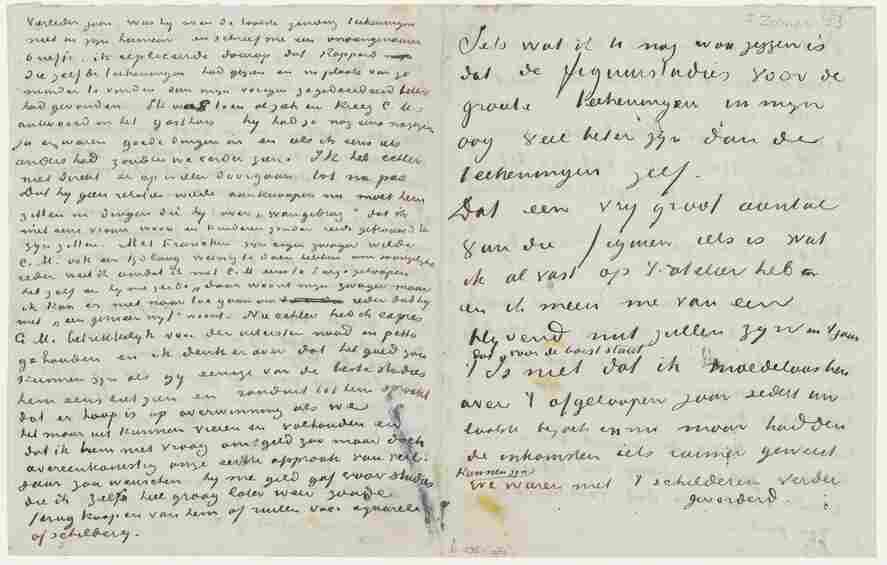 Verleden jaar was hij over de laatste zending teekeningen
niet in zijn humeur en schreef me een onaangenamen
brief. ik repliceerde daarop dat Rappard
die zelfde teekeningen had gezien en in plaats van ze
minder te vinden dan mijn vorigen ze beter
had gevonden. Ik was toen al ziek en kreeg C.M.s
antwoord in het gasthuis hij had ze nog eens nagezien
ja er waren goede dingen in en als ik eens als
anders had zouden we verder zien. Ik heb echter
niet direkt er op willen doorgaan
Dat hij geen wilde aanknoopen nu moet hem
zitten in dingen die hij over "wangedrag" dat ik
met eene vrouw woon en kinderen zonder getrouwd te
zijn zitten. Met zijn eigen zwager wilde
C.M. ook een tijd lang weinig te doen hebben om
reden weet ik omdat ik met C.M. eens
het zelf en hij me zeide "daar woont mijn zwager maar
ik kan er niet naar toe gaan om reden dat hij
met "een gemeen wijf" woont. Nu echter heb ik expres
C.M. betrekkelijk van den uitersten nood in petto
gehouden en ik denk er over dat het goed zou
kunnen zijn als gij eenige van de beste studies
hem eens liet zien en ronduit tot hem spraakt
dat er hoop is op overwinning als we
het maar uit kunnen vieren en volhouden en
dat ik hem niet vraag om geld zoo maar doch
overeenkomstig onze eerste afspraak van verl.
jaar zou wenschen hij me geld gaf voor studies
die ik zelfs heel graag later weer zoude
terug koopen van hem of ruilen voor aquarellen
of schilderij.
Iets wat ik U nog wou zeggen is
dat de figuurstudies voor de
groote teekeningen in mijn
oog veel beter zijn dan de
teekeningen zelf.
Dat een vrij groot aantal
van die figuren iets is wat
ik al vast op 't atelier heb
en ik meen me van een
blijvend nut zullen zijn en 't jaar
dat voor de borst staat
't Is niet dat ik moedeloos ben
over 't afgeloopen jaar sedert uw
laatste bezoek en nu maar hadden
de inkomsten iets ruimer geweest
kunnen zijn
we waren met 't schilderen verder
gevorderd.